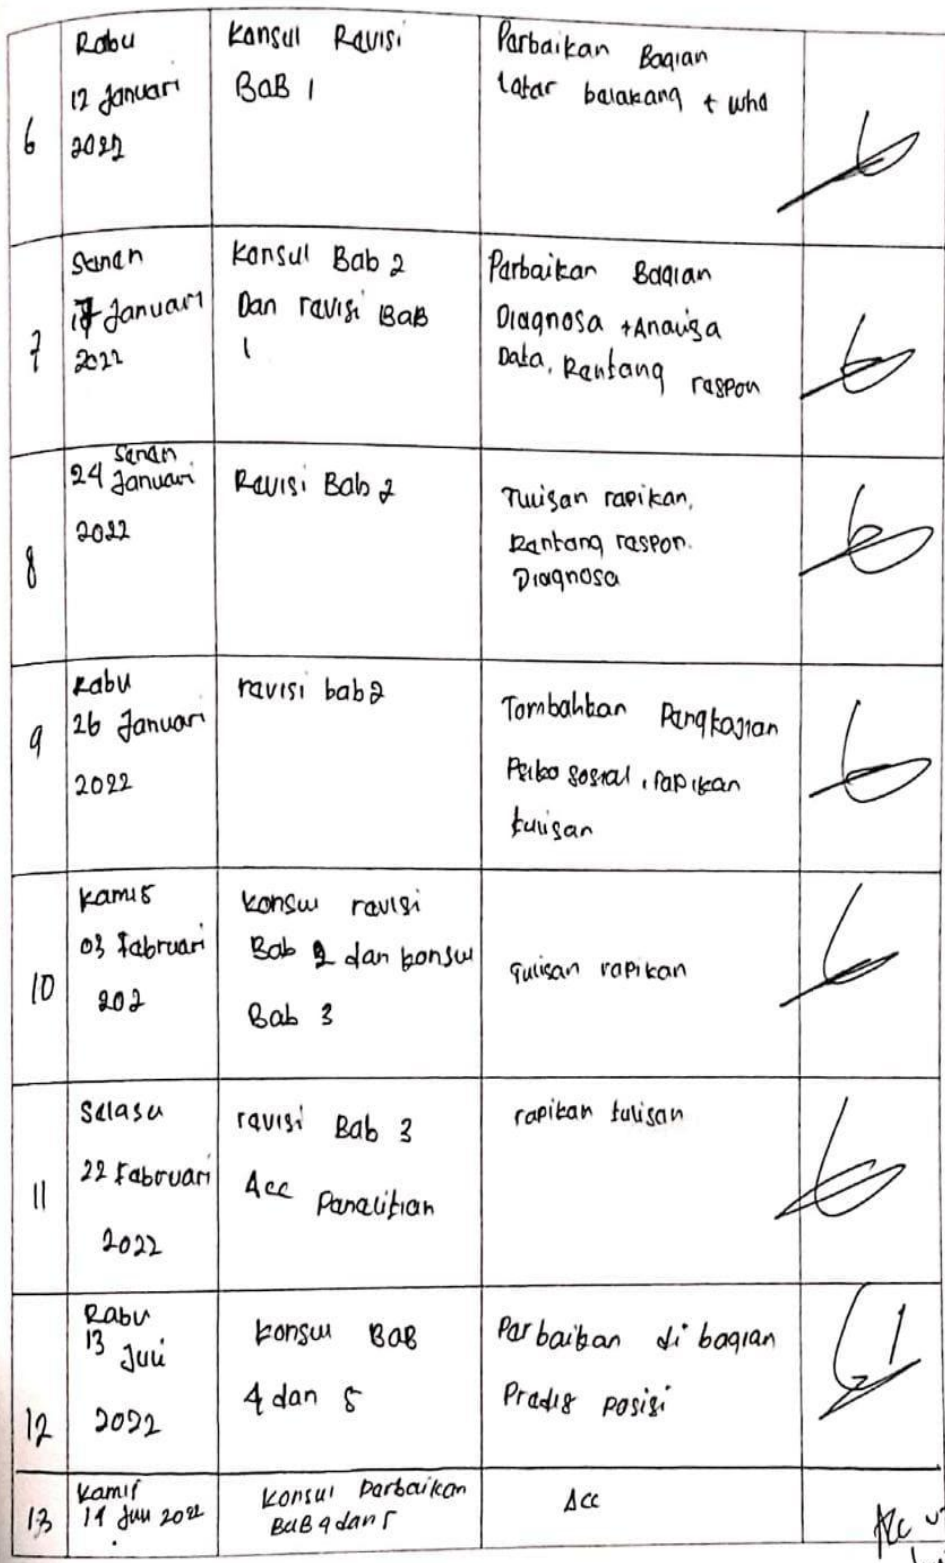 6
Rabu
12 Januari
2022
Konsul Revisi
BAB 1
Perbaikan Bagian
latar belakang + who
7
Senen
17 Januari
2022
Konsul Bab 2
Dan revisi BAB
1
Perbaikan Bagian
Diagnosa + Analisa
Data, Rentang respon
8
Senen
24 Januari
2022
Revisi Bab 2
Tulisan rapikan,
Rentang respon.
Diagnosa
9
Rabu
26 Januari
2022
revisi bab 2
Tombahkan Pengkajian
Psiko sosial, rapikan
tulisan
10
Kamis
03 Februari
202
Konsul revisi
Bab 2 dan konsul
Bab 3
Tulisan rapikan
11
Selasa
22 Februari
2022
revisi Bab 3
Acc Penelitian
rapikan tulisan
12
Rabu
13 Juli
2022
Konsul BAB
4 dan 5
Perbaikan di bagian
Predis posisi
13
Kamis
14 Juli 2022
Konsul Perbaikan
BAB 4 dan 5
Acc
Acc